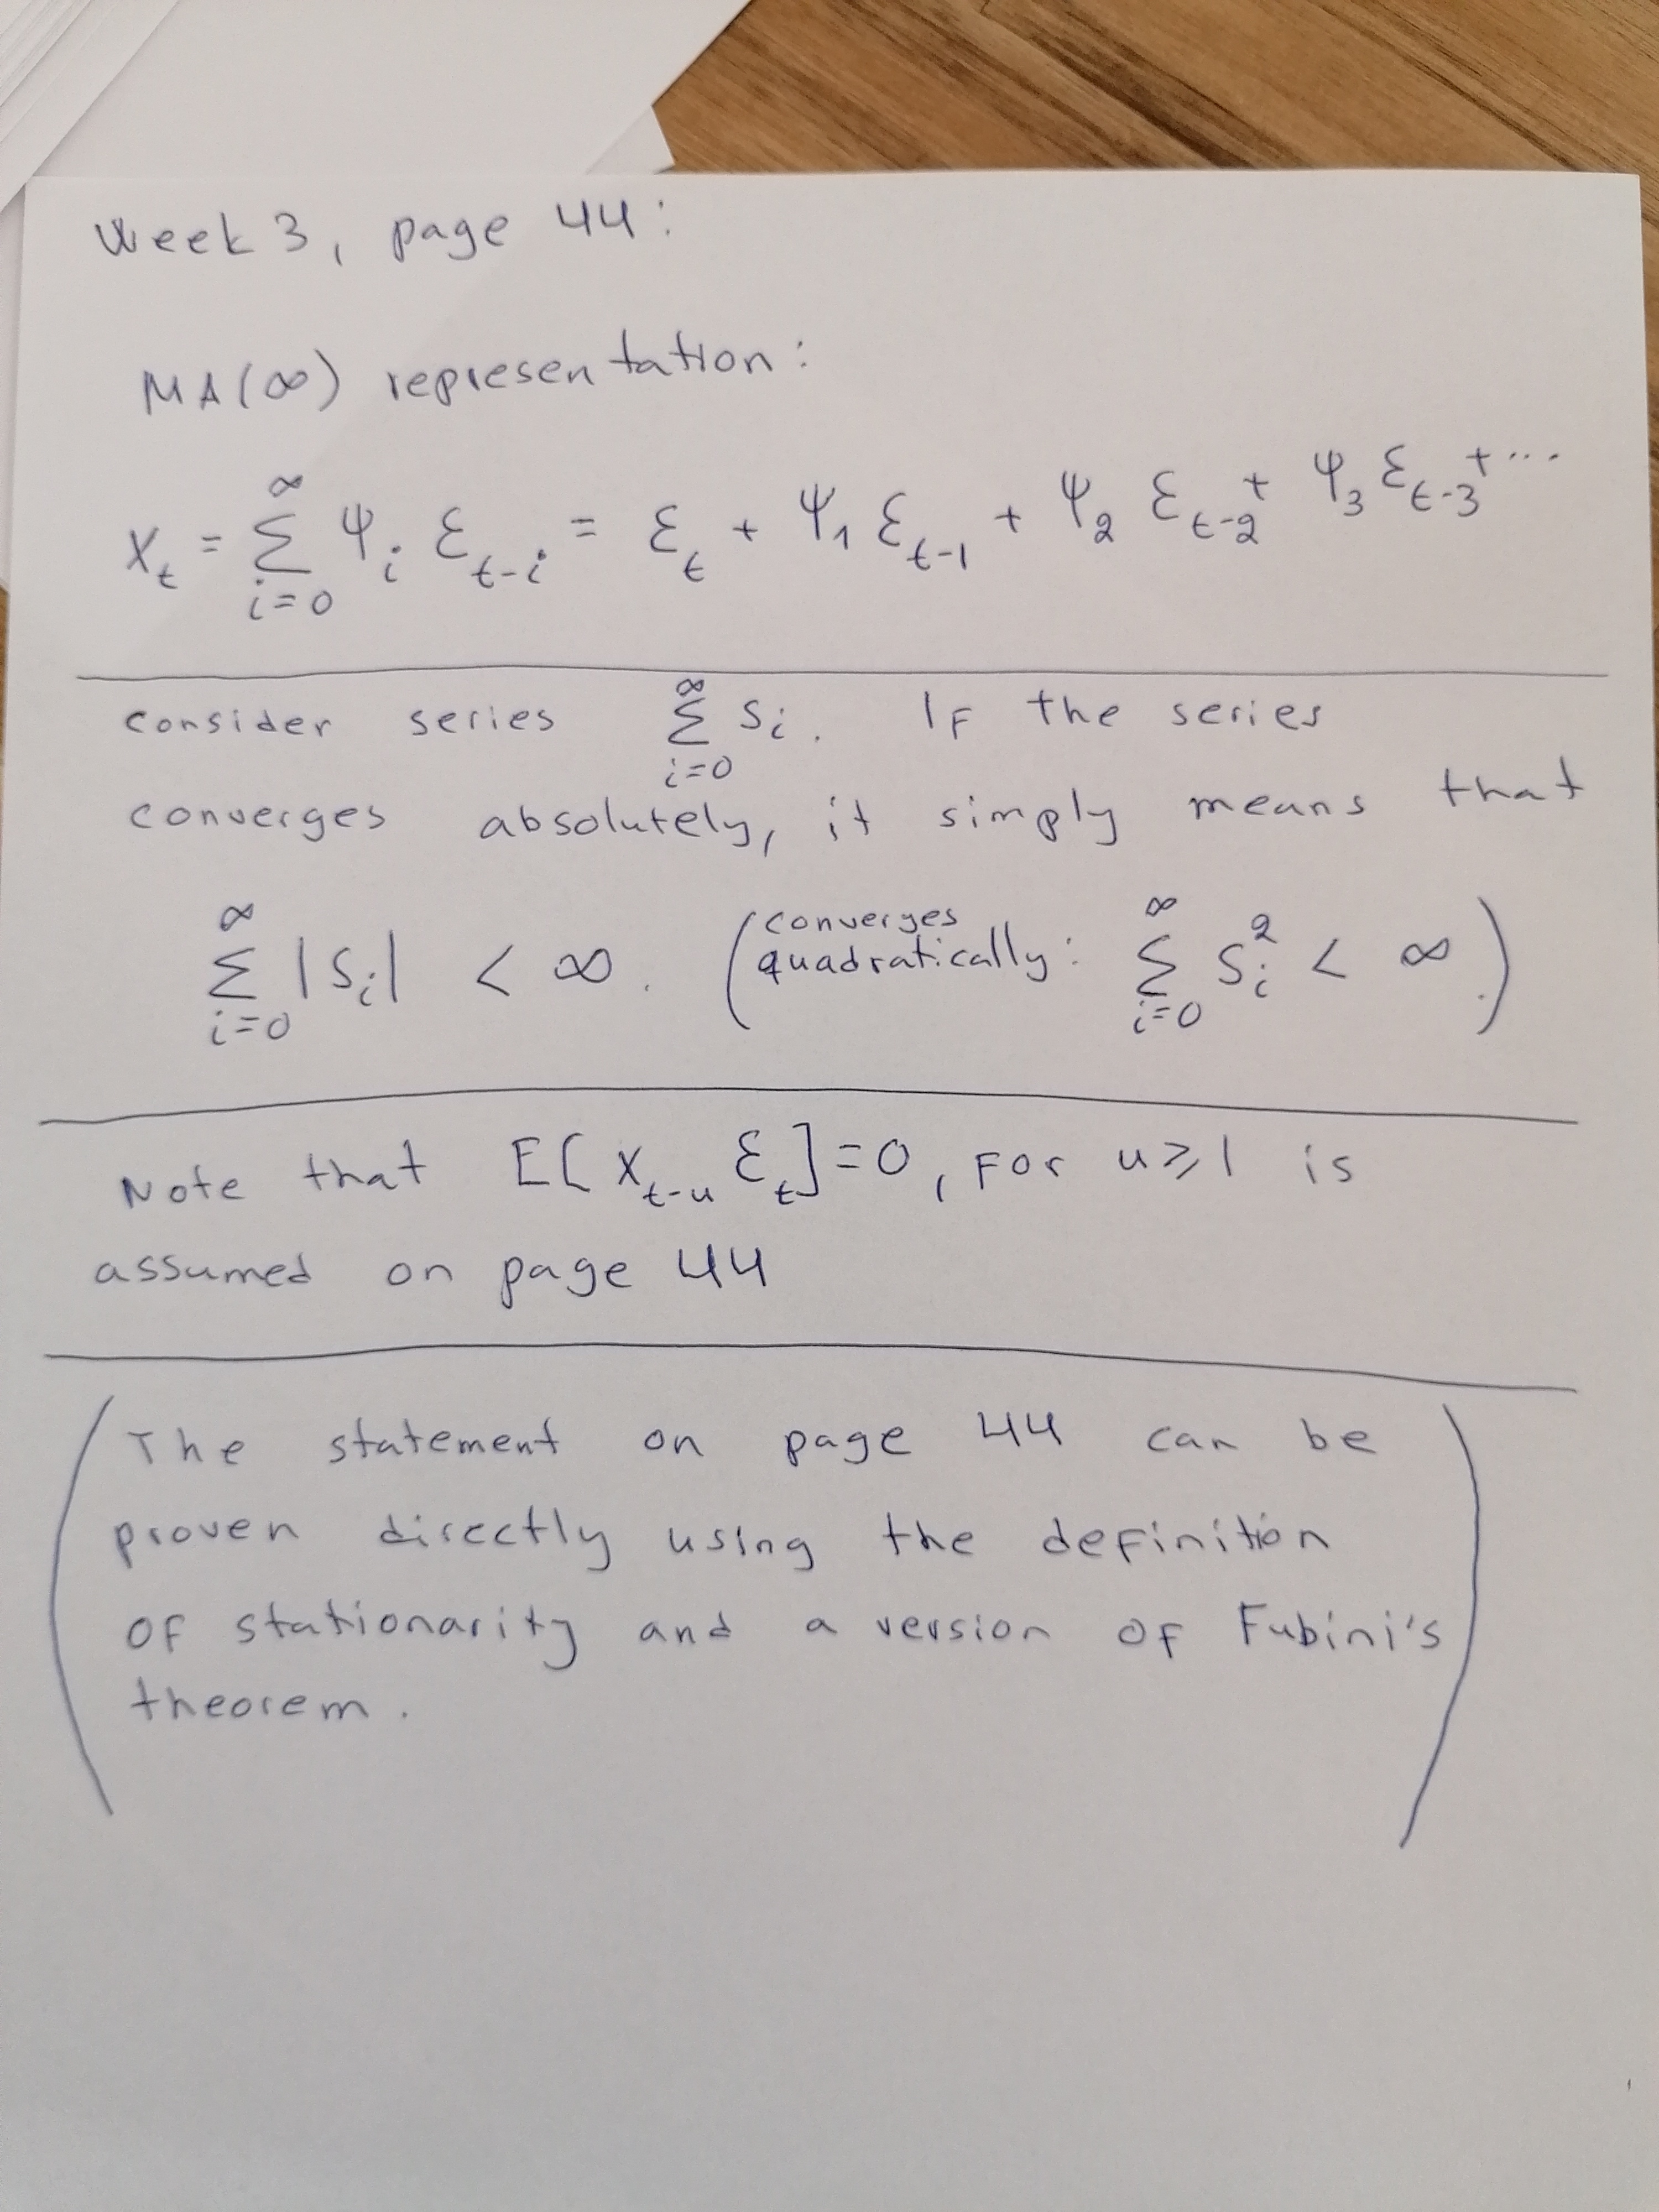 Week 3, page 44:
MA(∞) representation:
X_t = ∑_{i=0}^{∞} Ψ_i Ɛ_{t-i} = Ɛ_t + Ψ_1 Ɛ_{t-1} + Ψ_2 Ɛ_{t-2} + Ψ_3 Ɛ_{t-3} + ...
Consider series ∑_{i=0}^{∞} S_i. If the series
converges absolutely, it simply means that
∑_{i=0}^{∞} |S_i| < ∞. (converges quadratically: ∑_{i=0}^{∞} S_i^2 < ∞.)
Note that E[X_{t-u} Ɛ_t]=0, for u⩾1 is
assumed on page 44
(The statement on page 44 can be
proven directly using the definition
of stationarity and a version of Fubini's
theorem.)